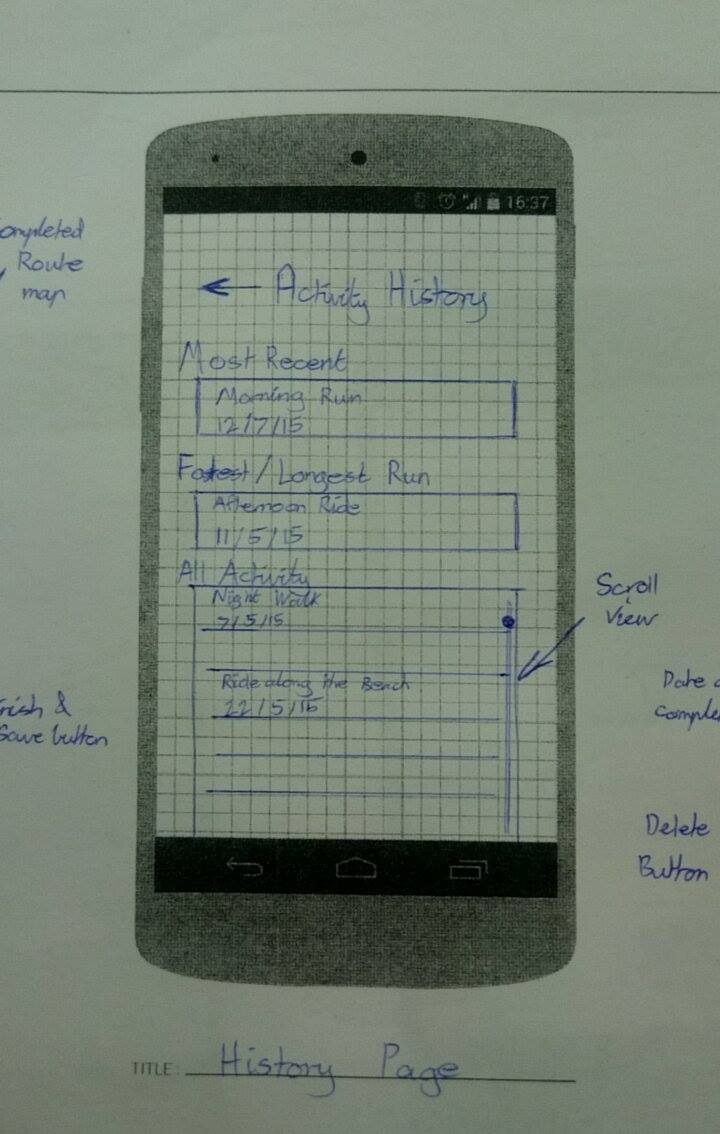 16:37
Completed
Route
map
← Activity History
Most Recent
Morning Run
12/7/15
Fastest/Longest Run
Afternoon Ride
11/5/15
All Activity
Night Walk
7/5/15
Scroll
View
Ride along the Beach
22/5/15
&
Save button
Date
Delete
Button
TITLE: History Page